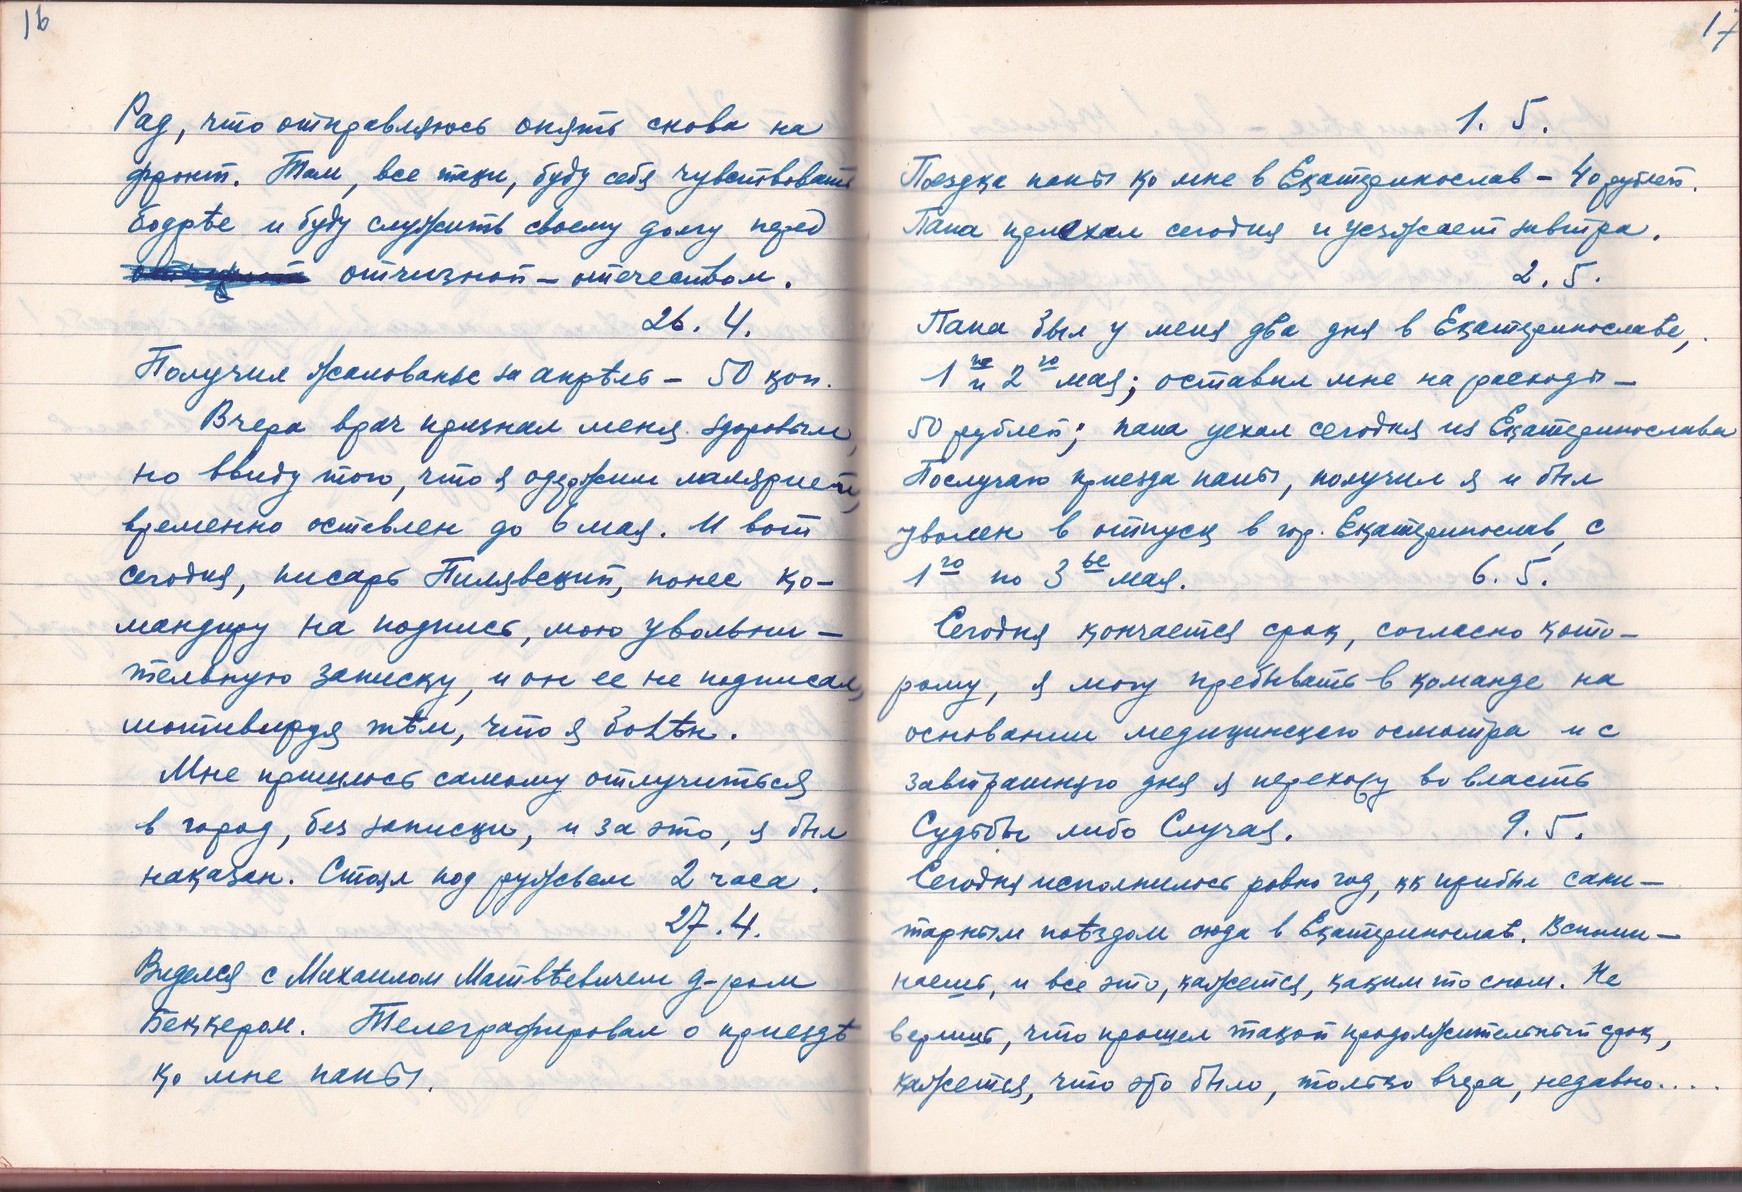 16
Рад, что отправляюсь опять снова на
фронт. Там, все таки, буду себя чувствовать
бодрѣе и буду служить своему долгу перед
отчизной – отечеством.
26. 4.
Получил жалованье за апрѣль – 50 коп.
Вчера врач признал меня здоровым,
но ввиду того, что я одержим малярией,
временно оставлен до 6 мая. И вот
сегодня, писарь Пилявский, понес ко–
мандиру на подпись, мою увольни–
тельную записку, и он ее не подписал,
мотивируя тѣм, что я болѣн.
Мне пришлось самому отлучиться
в город, без записки, и за это, я был
наказан. Стоял под ружьем 2 часа.
27. 4.
Виделся с Михаилом Матвѣевичем д-ром
Беккером. Телеграфировал о приездѣ
ко мне папы.
17
1. 5.
Поездка папы ко мне в Екатеринослав – 40 рублей.
Папа приехал сегодня и уезжает завтра.
2. 5.
Папа был у меня два дня в Екатеринославе,
1го и 2го мая; оставил мне на расходы –
50 рублей; папа уехал сегодня из Екатеринослава
Послучаю приезда папы, получил я и был
уволен в отпуск в гор. Екатеринослав, с
1го по 3ье мая. 6. 5.
Сегодня кончается срок, согласно кото–
рому, я могу пребывать в команде на
основании медицинского осмотра и с
завтрашнего дня я перехожу во власть
Судьбы либо Случая. 9. 5.
Сегодня исполнилось ровно год, кк прибыл сани–
тарным поѣздом сюда в Екатеринослав. Вспоми–
наешь, и все это, кажется, каким то сном. Не
веришь, что прошел такой продолжительный срок,
кажется, что это было, только вчера, недавно....